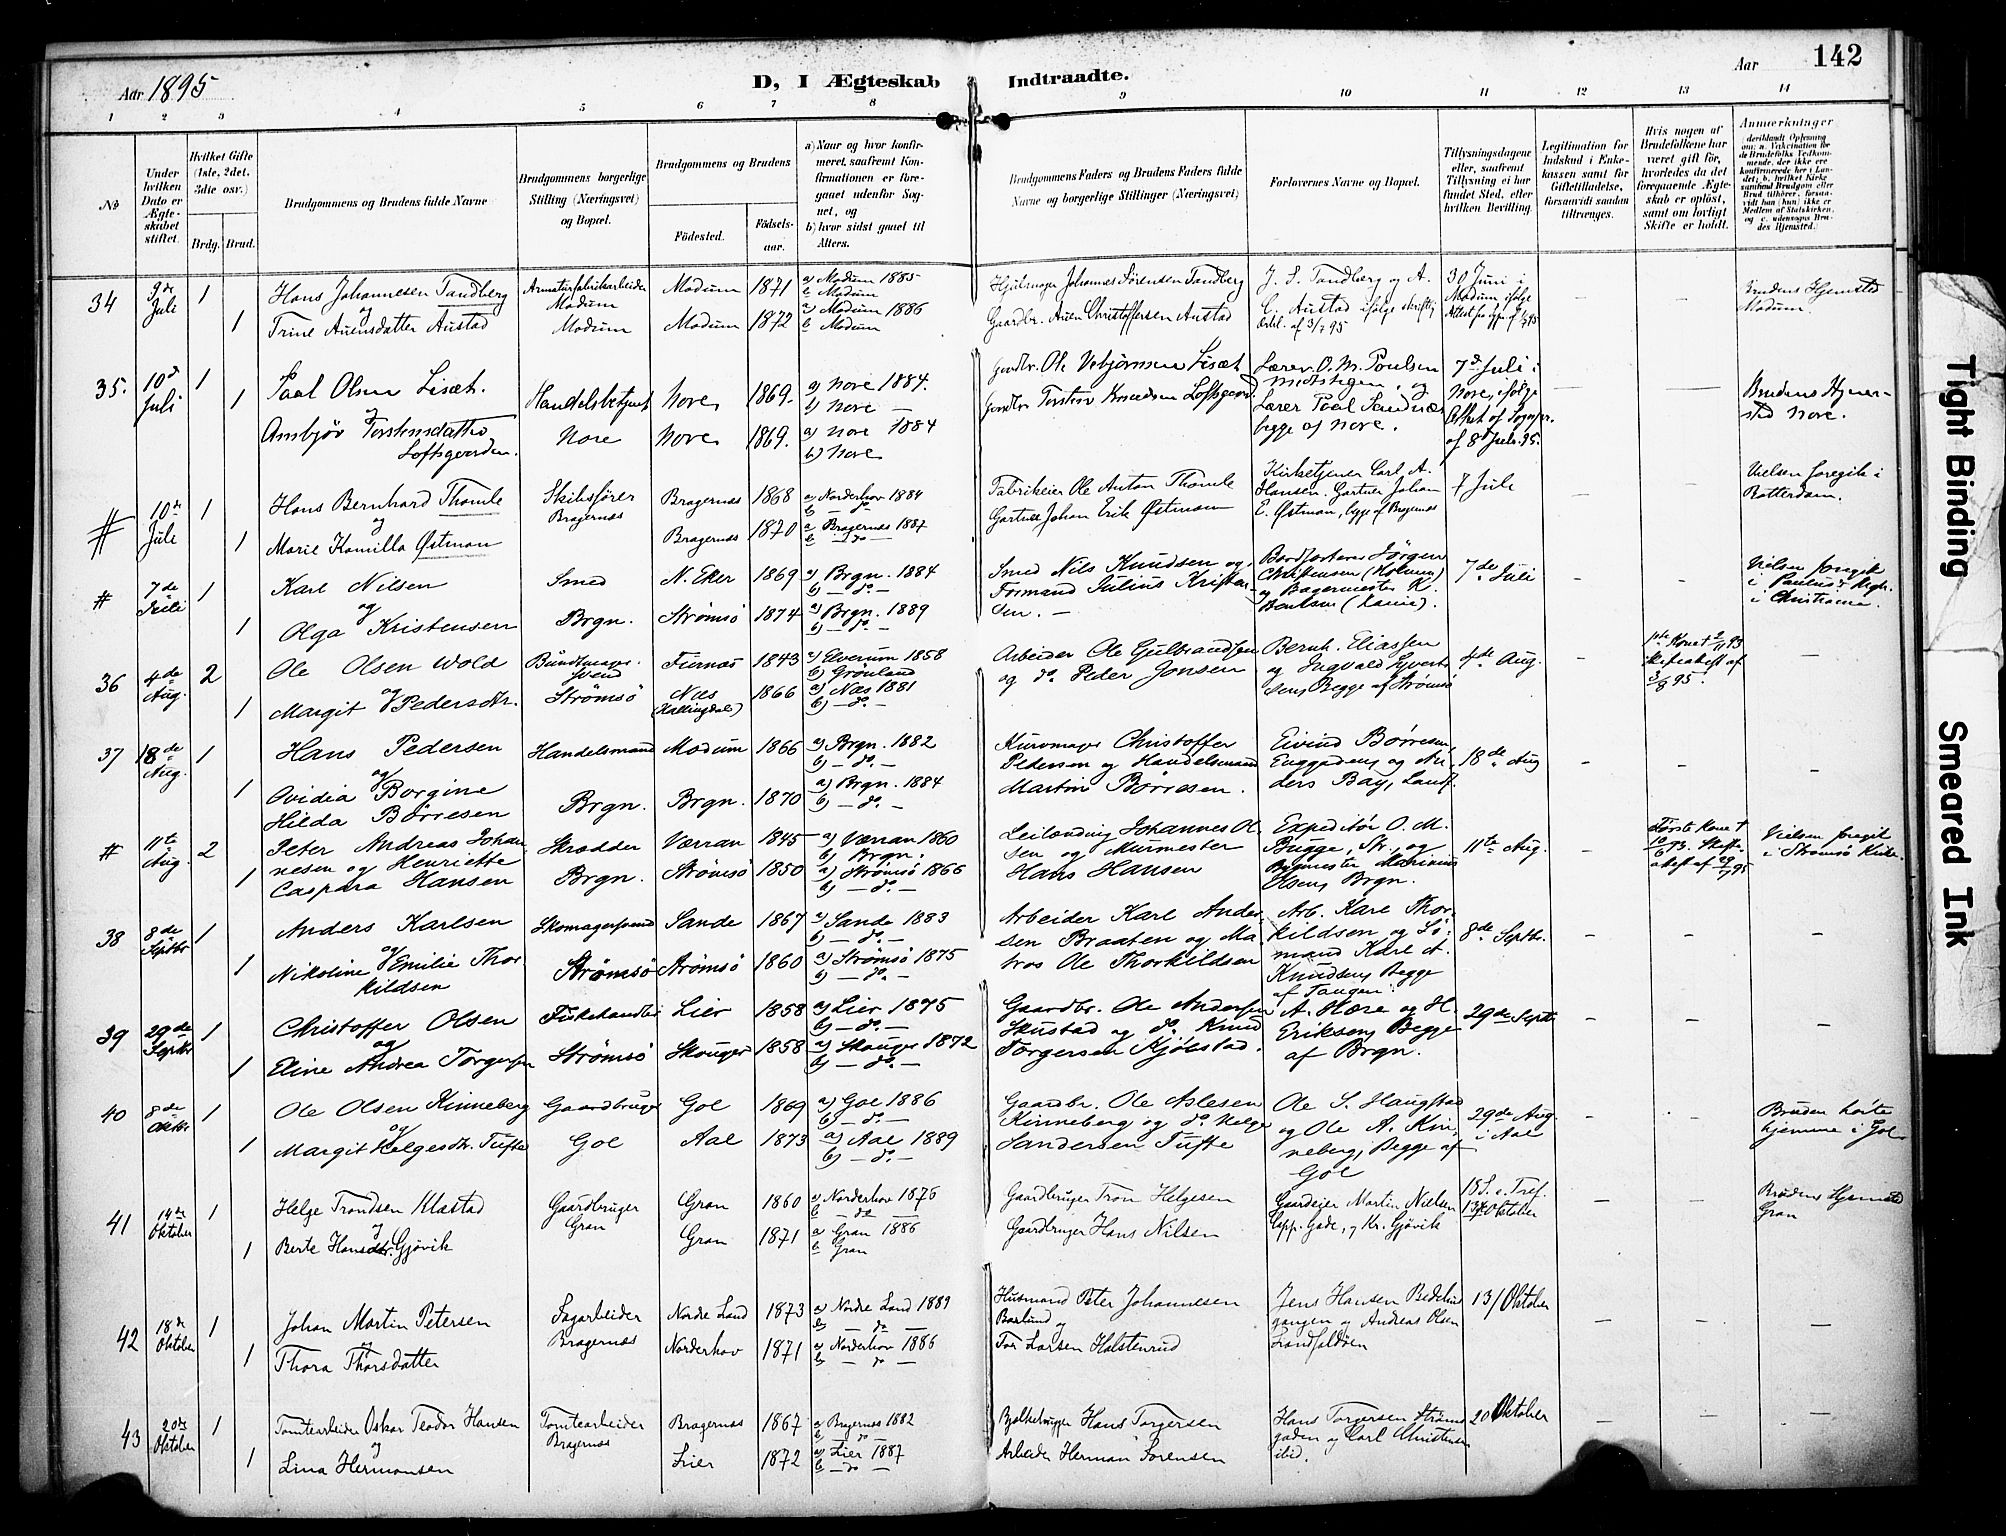 142
Aar 1895
D, I Ægteskab Indtraadte.
Aar
1 2 3 4 5 6 7 8 9 10 11 12 13 14
No
Under hvilken Dato er Ægteskabet stiftet.
Hvilket Gifte (1ste, 2det, 3die osr.)
Brdg. Brud.
Brudgommens og Brudens fulde Navne
Brudgommens borgerlige Stilling (Næringsvei) og Bopæl.
Brudgommens og Brudens
Fødested.
Fødselsaar.
a) Naar og hvor konfirmeret, saafremt Konfirmationen er foregaaet udenfor Sognet, og
b) hvor sidst gaaet til Alters.
Brudgommens Faders og Brudens Faders fulde Navne og borgerlige Stillinger (Næringsvei)
Forlovernes Navne og Bopæl.
Tillysningsdagene eller, saafremt Tillysning ei har fundet Sted, efter hvilken Bevilling.
Legitimation for Indskud i Enkekassen samt for Giftetilladelse, forsaavidt saadan tiltrænges.
Hvis nogen af Brudefolkene har været gift før, hvorledes da det foregaaende Ægteskab er opløst, samt om lovligt Skifte er holdt.
Anmerkninger
34 9de Juli 1 Hans Johannesen Tandberg Armaturfabrikarbeider Modum Modum 1871 a) Modum 1885 b Modum
Hjulmager Johannes Sørensen Tandberg J. S. Tandberg og A. C. Austad ifølge skriftlig 30 Juni i Modum ifølge Brudens Hjemsted Modum.
1 og Trine Auensdatter Austad Modum Modum 1872 a) Modum 1886 b Modum
Gaardbr. Auen Christoffersen Austad
35. 10d Juli 1 Paal Olsen Lisæt. Handelsbetjent Nore 1869. a) Nore 1884. b) Nore
Lærer O. M. Poulsen og Lærer Paal begge af Nore. 7d Juli i Nore, ifølge Brudens Hjemsted Nore.
1 og Ambjør Torstensdatter Loftsgaarden. Nore Nore 1869. a) Nore 1884 b) Nore
# 10de Juli 1 Hans Bernhard Thomle Skibsfører Bragernæs Bragernæs 1868 a) Norderhov 1884 b - do -
Fabrikeier Ole Anton Thomle Kirketjener Carl A. Hansen. Gartner Johan E. Østman, begge af Bragernæs 7 Juli Vielsen foregik i Rotterdam.
1 og Marie Kamilla Østman Bragernæs 1870 a Bragernæs 1887 b - do -
Gartner Johan Erik Østman
# 7de Juli 1 Karl Nilsen Smed N. Eker 1869 a) Brgn. 1884 b) - do. -
Smed Nils Knudsen og Formand Julius Kristensen. - Jørgen Christensen (Holmen) og Bagermester K. 7de Juli Vielsen foregik i Paulus Kirke i Christiania.
1 og Olga Kristensen Brgn. Strømsø 1874 a) Brgn. 1889 b) - do. -
36 4de Aug. 2 Ole Olsen Wold Buntmagersvend Furnæs 1843 a) Elverum 1858 b) Grønland
Arbeider Ole Gulbrandsen og do. Peder Jonsen Bernh. Eliassen og Ingvald Syvertsen, Begge af Strømsø 4de Aug. 1ste Kone † 2/11 93
1 og Margit Pedersdtr. Strømsø Næs (Hallingdal) 1866 a) Næs 1881 b) - do. -
37 18de Aug. 1 Hans Pedersen Handelsmand Modum 1866 a) Brgn. 1882 b) - do. -
Christoffer Pedersen og Handelsmand Martin Børresen. Eivind Børresen, Enggaden, og Anders Bay, Landf. 18de Aug
1 og Ovidia Borgine Hilda Børresen Brgn. Brgn. 1870 a) Brgn. 1884 b) - do. -
# 11te Aug. 2 Peter Andreas Johannesen og Henriette Caspara Hansen Skrædder Værran 1845 a) Værran 1860 b) Brgn.
Leilænding Johannes Olsen og Murmester Hans Hansen Expeditør O. M. Bugge, Str., og Bygmester Marinius Olsen, Brgn. 11te Aug. Første Kone † Vielsen foregik i Strømsø Kirke.
1 Brgn. Strømsø 1850 a) Strømsø 1866 b) - do. -
38 8de Septbr 1 Anders Karlsen Skomagersvend Sande 1867 a) Sande 1883 b) - do. -
Arbeider Karl Andersen Braaten og Matros Ole Thorkildsen Arb. Karl Thorkildsen og Sømand Karl A. Knudsen, Begge af Tangen. 8de Septbr.
1 og Nikoline Emilie Thorkildsen Strømsø Strømsø 1860 a) Strømsø 1875 b) - do. -
39 29de Septbr 1 Christoffer Olsen Fiskehandler Lier 1858 a) Lier 1875 b) - do. -
Gaardbr. Ole Andersen Skustad og do. Knud Torgersen Kjølstad. A. Hære og H. Eriksen, Begge af Brgn. 29de Septb
1 og Eline Andrea Torgersen Strømsø Skouger 1858 a) Skouger 1872 b) - do. -
40 8de Oktbr 1 Ole Olsen Kinneberg Gaardbruger Gol 1869 a) Gol 1886 b) - do. -
Gaardbr. Ole Aslesen Kinneberg og do. Helge Sandersen Tufte Ole S. Haugstad og Ole A. Kinneberg, Begge af Gol 29de Aug. i Aal Bruden hørte hjemme i Gol
1 og Margit Helgesdtr. Tufte Gol Aal 1873 a) Aal 1889 b) - do. -
41 14de Oktober 1 Helge Trondsen Klæstad Gaardbruger Gran Gran 1860 a) Norderhov 1876 b - do -
Gaardbruger Tron Helgesen Gaardeier Martin Nielsen Capp. Gade, og Kr. Gjøvik 18 S. e. Tref. 13de Oktober Brudens Hjemsted Gran
1 og Berte Hansdtr. Gjøvik Gran 1871 a Gran 1886 b Gran
Gaardbruger Hans Nilsen
42 18de Oktober 1 Johan Martin Petersen Sagarbeider Bragernæs Nordre Land 1873 a) Nordre Land 1889 b - do -
Husmand Peter Johannesen og Jens Hansen og Andreas Olsen Landfaldøen 13/ Oktober
1 og Thora Thorsdatter Norderhov 1871 a) Norderhov 1886 b - do -
Tor Larsen Halstenrud
43 20de Oktober 1 Tomtearbeider Oskar Teodor Hansen Tomtearbeider Bragernæs Bragernæs 1867 a Bragernæs 1882 b do
Hans Torgersen Hans Torgersen Strømsgaden og Carl Christensen ibid. 20 Oktober
1 og Lina Hermansen Lier 1872 a) Lier 1887 b - do -
Arbeider Herman Sørensen
Tight Binding
Smeared Ink